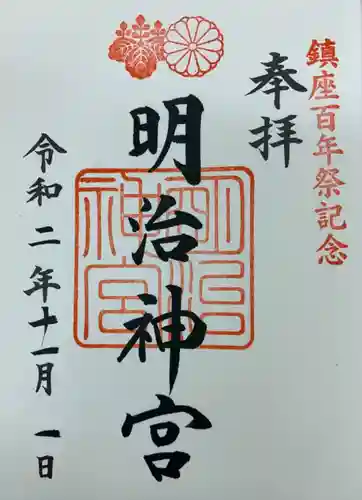 鎮座百年祭記念
奉拝
明治神宮
明治神宮
令和二年十一月一日